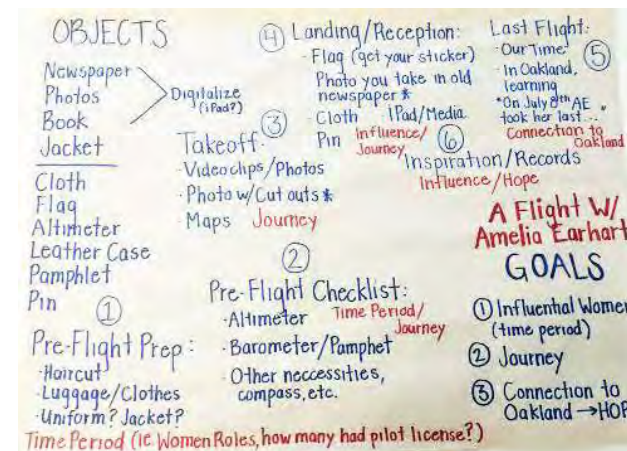 OBJECTS
Newspaper
Photos
Book
Jacket
Digitalize
(iPad?)
Cloth
Flag
Altimeter
Leather Case
Pamphlet
Pin
①
Pre-Flight Prep:
·Haircut
·Luggage/Clothes
·Uniform? Jacket?
Time Period (ie. Women Roles, how many had pilot license?)
②
Pre-Flight Checklist:
·Altimeter
Time Period/
Journey
·Barometer/Pamphet
·Other neccessities,
compass, etc.
③
Takeoff:
·Videoclips/Photos
·Photo w/Cut outs *
·Maps Journey
④ Landing/Reception:
·Flag (get your sticker)
Photo you take in old
newspaper *
·Cloth iPad/Media
Pin Influence/
Journey
Last Flight:
⑤
·Our Time
·In Oakland,
learning
*On July 8th AE
took her last...
Connection to
Oakland
⑥
Inspiration/Records
Influence/Hope
A Flight W/
Amelia Earhart
GOALS
① Influential Women
(time period)
② Journey
③ Connection to
Oakland → HOP